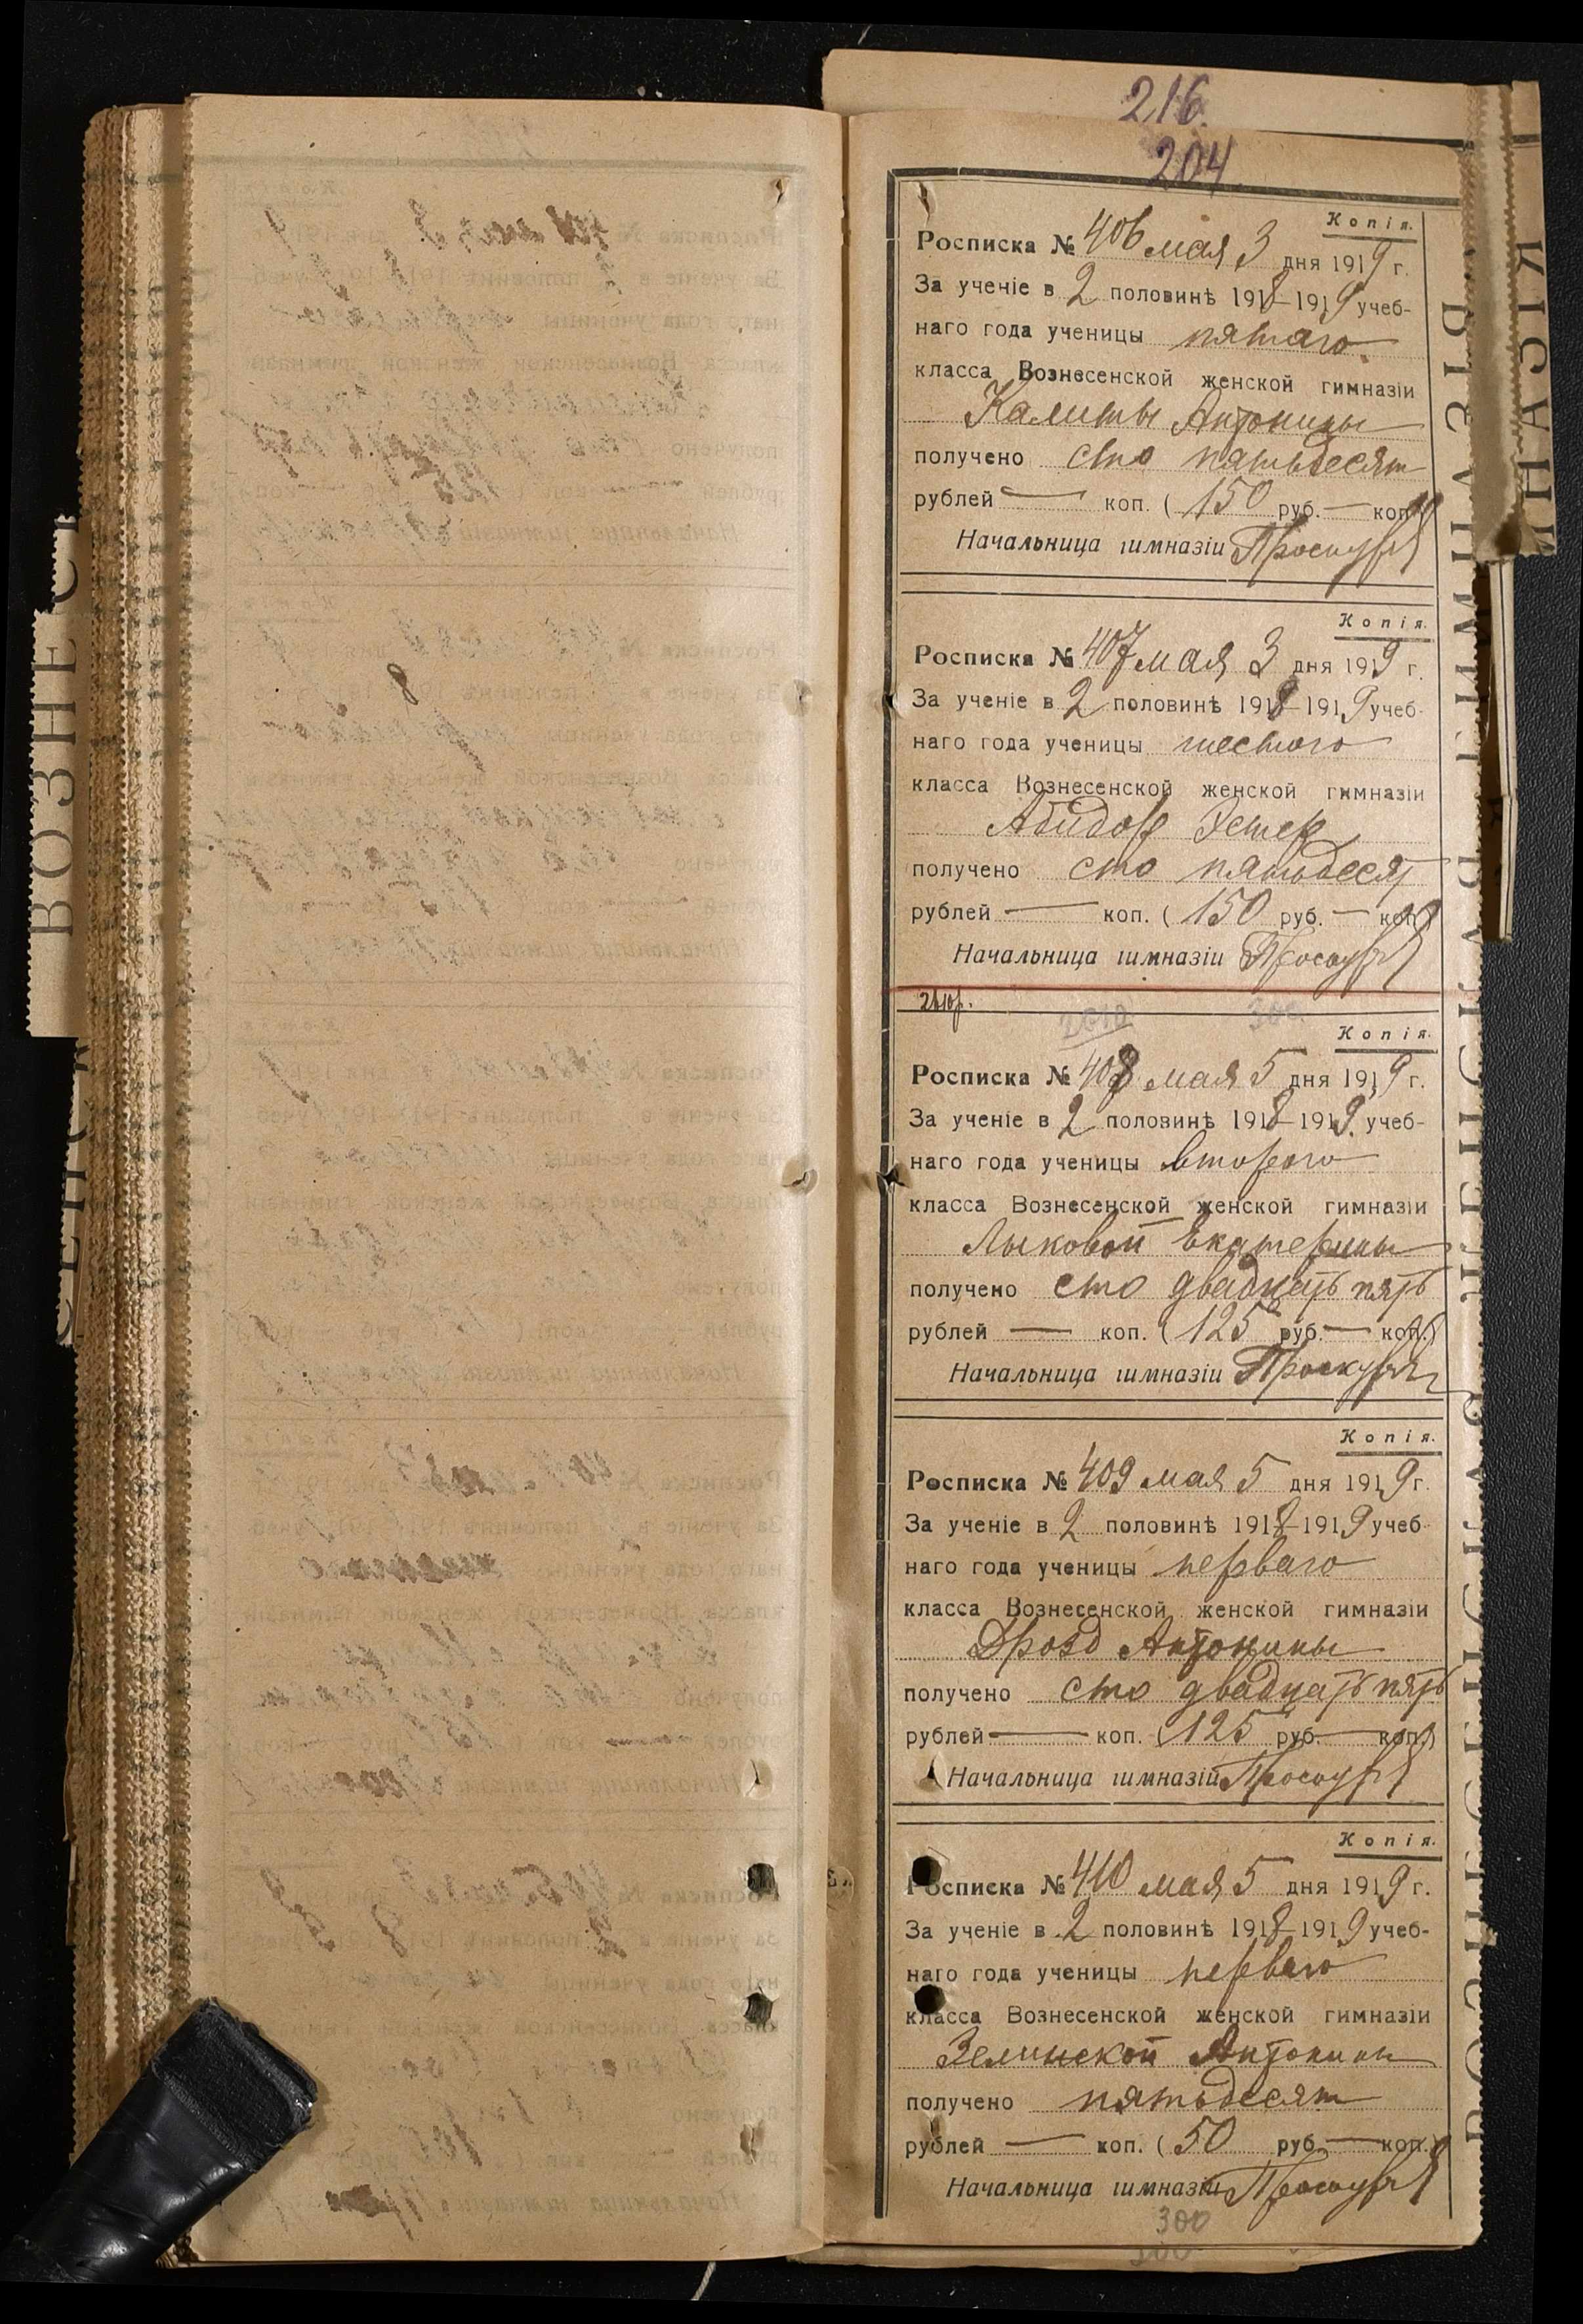 216.
204
Копія.
Росписка № 406 мая 3 дня 1919 г.
За ученіе в 2 половинѣ 1918-1919 учеб-
наго года ученицы пятаго
класса Вознесенской женской гимназіи
Калиты Антонины
получено сто пятьдесят
рублей — коп. (150 руб. — коп.)
Начальница гимназіи
Копія.
Росписка № 407 мая 3 дня 1919 г.
За ученіе в 2 половинѣ 1918-1919 учеб-
наго года ученицы шестого
класса Вознесенской женской гимназіи
Абидор Эстер
получено сто пятьдесят
рублей — коп. (150 руб. — коп.)
Начальница гимназіи
2610р.
2610
300
Копія.
Росписка № 408 мая 5 дня 1919 г.
За ученіе в 2 половинѣ 1918-1919 учеб-
наго года ученицы второго
класса Вознесенской женской гимназіи
Лыковой Екатерины
получено сто двадцать пять
рублей — коп. (125 руб. — коп.)
Начальница гимназіи
Копія.
Росписка № 409 мая 5 дня 1919 г.
За ученіе в 2 половинѣ 1918-1919 учеб-
наго года ученицы перваго
класса Вознесенской женской гимназіи
Дрозд Антонины
получено сто двадцать пять
рублей — коп. (125 руб. — коп.)
Начальница гимназіи
Копія.
Росписка № 410 мая 5 дня 1919 г.
За ученіе в 2 половинѣ 1918-1919 учеб-
наго года ученицы перваго
класса Вознесенской женской гимназіи
Зелинской Антонины
получено пятьдесят
рублей — коп. (50 руб. — коп.)
Начальница гимназіи
300
300
ВОЗНЕС